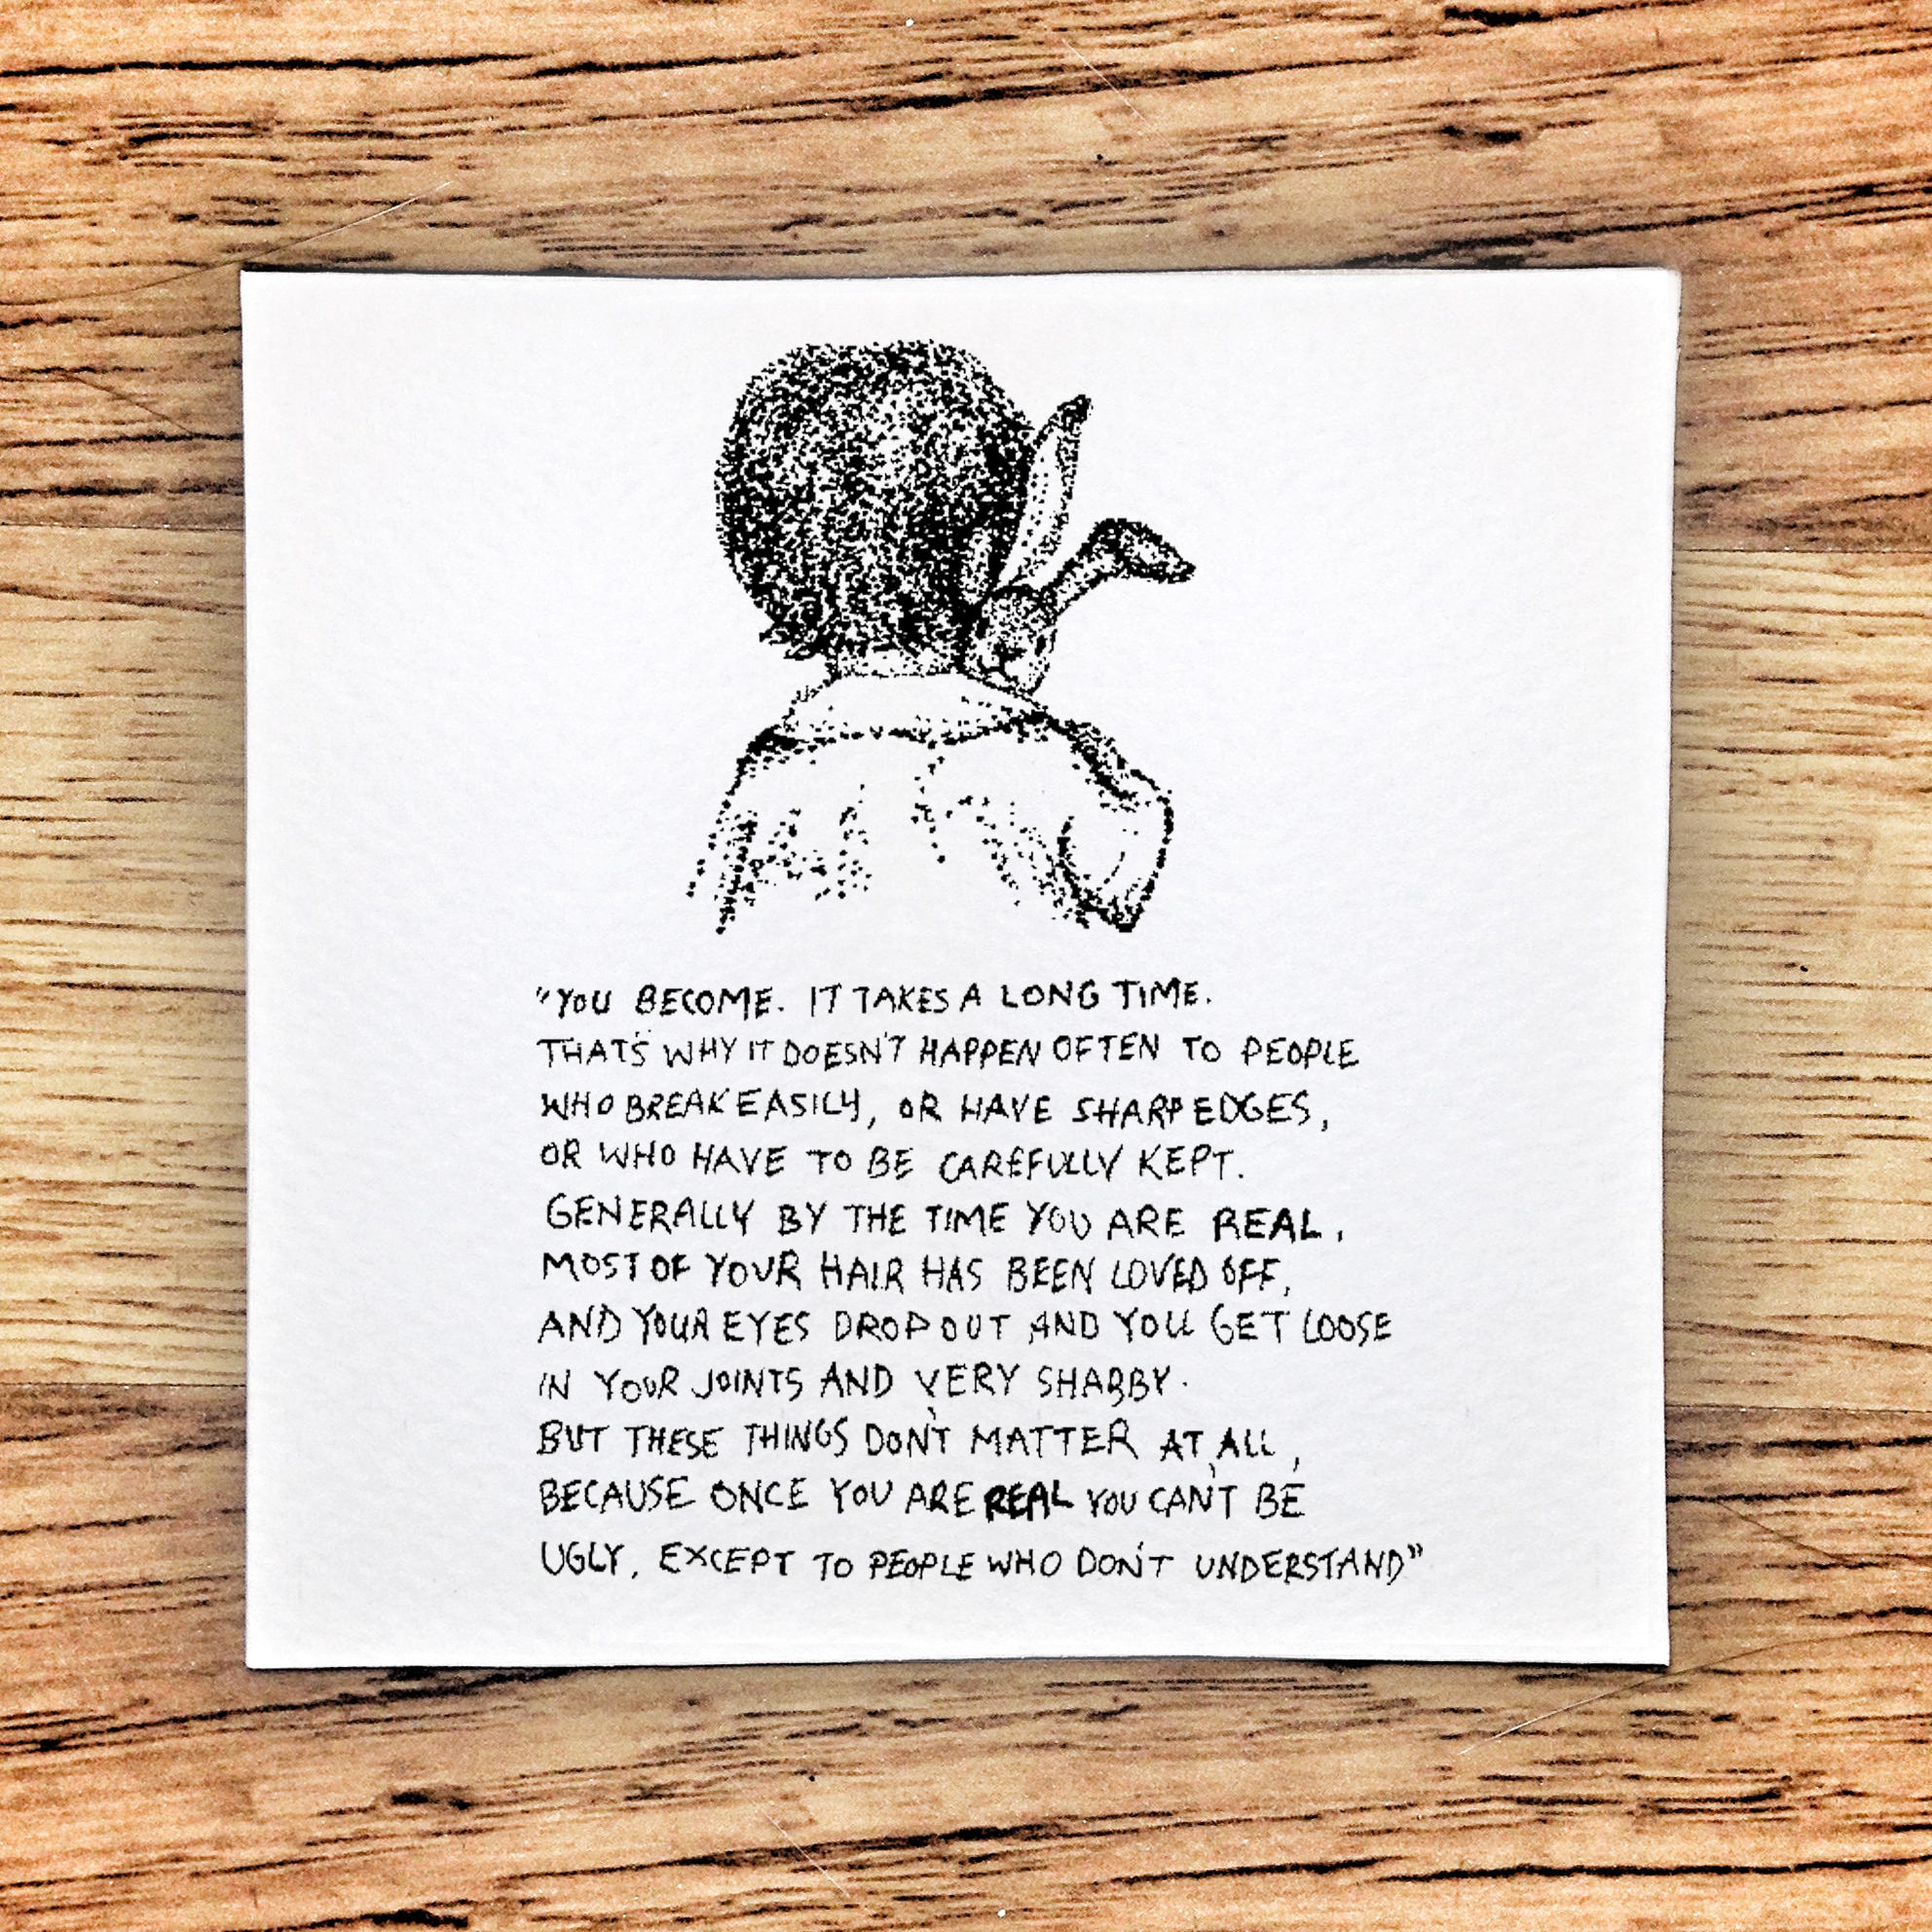 "YOU BECOME. IT TAKES A LONG TIME.
THAT'S WHY IT DOESN'T HAPPEN OFTEN TO PEOPLE
WHO BREAK EASILY, OR HAVE SHARP EDGES,
OR WHO HAVE TO BE CAREFULLY KEPT.
GENERALLY BY THE TIME YOU ARE REAL,
MOST OF YOUR HAIR HAS BEEN LOVED OFF,
AND YOUR EYES DROP OUT AND YOU GET LOOSE
IN YOUR JOINTS AND VERY SHABBY.
BUT THESE THINGS DON'T MATTER AT ALL,
BECAUSE ONCE YOU ARE REAL YOU CAN'T BE
UGLY, EXCEPT TO PEOPLE WHO DON'T UNDERSTAND"